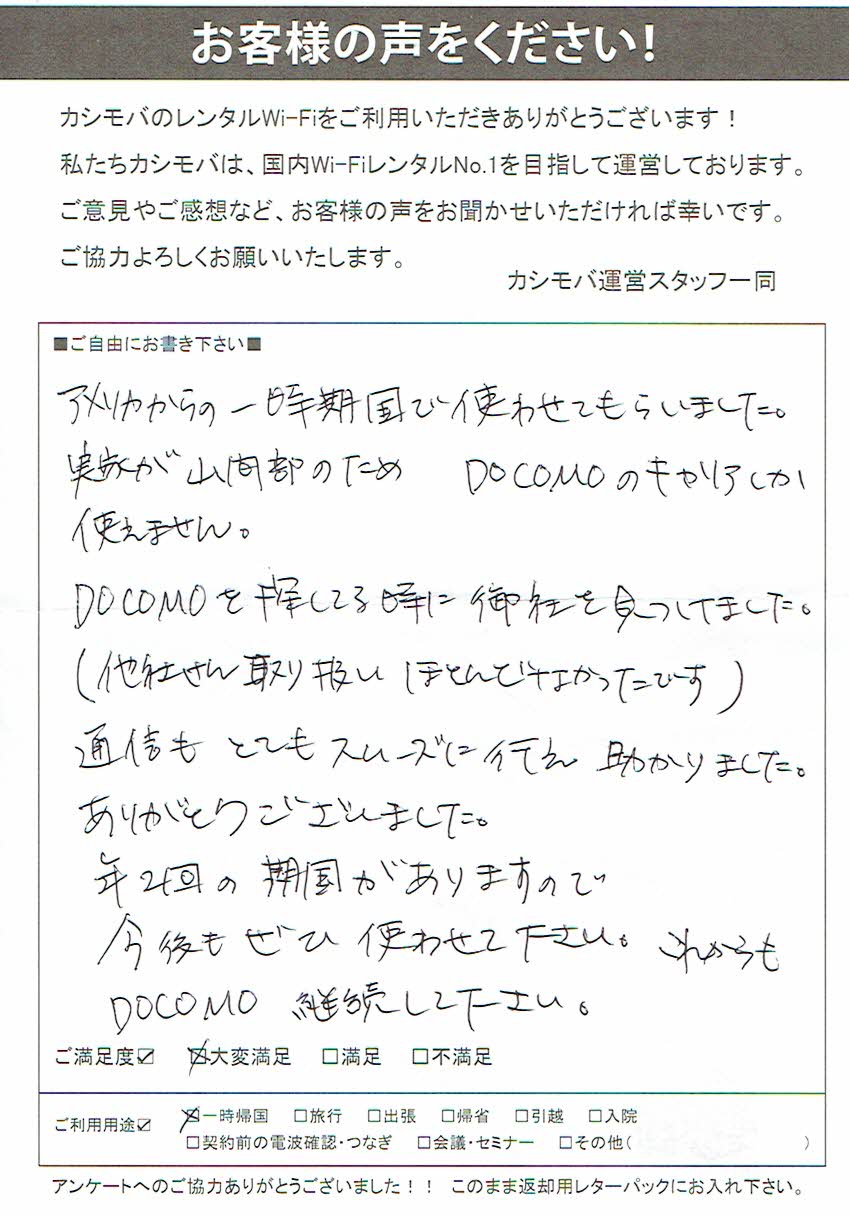 お客様の声をください!
カシモバのレンタルWi-Fiをご利用いただきありがとうございます！
私たちカシモバは、国内Wi-FiレンタルNo.1を目指して運営しております。
ご意見やご感想など、お客様の声をお聞かせいただければ幸いです。
ご協力よろしくお願いいたします。
カシモバ運営スタッフ一同
■ご自由にお書き下さい■
アメリカからの一時期国で使わせてもらいました。
実家が山間部のため DOCOMOのキャリアしか
使えません。
DOCOMOを探してる時に御社を見つけました。
(他社さん取り扱いほとんどなかったです)
通信もとてもスムーズに行え助かりました。
ありがとうございました。
年2回の期国がありますので
今後もぜひ使わせて下さい。これからも
DOCOMO継続して下さい。
ご満足度☑ ☒大変満足 □満足 □不満足
ご利用用途☑ ☒一時帰国 □旅行 □出張 □帰省 □引越 □入院
□契約前の電波確認・つなぎ □会議・セミナー □その他( )
アンケートへのご協力ありがとうございました！！ このまま返却用レターパックにお入れ下さい。